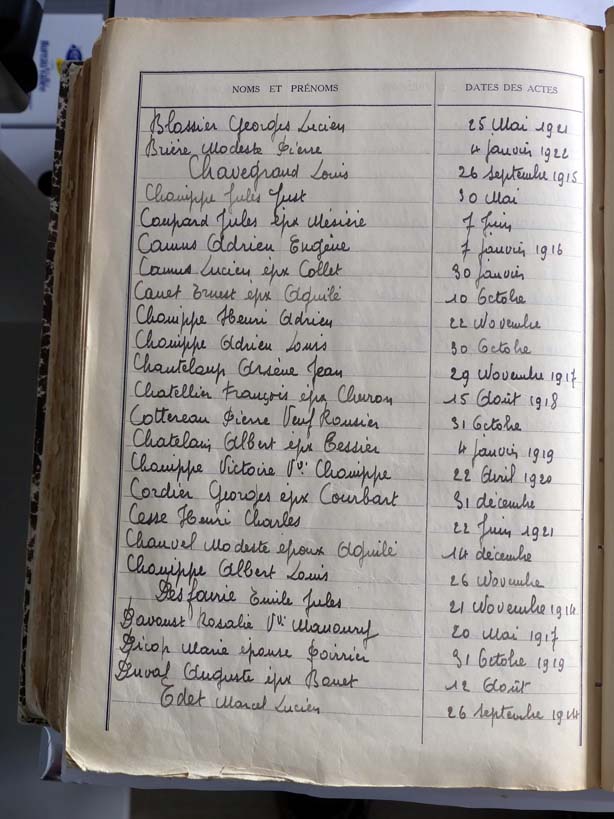 NOMS ET PRÉNOMS DATES DES ACTES
Blassier Georges Lucien 25 Mai 1921
Brière Modeste Pierre 4 janvier 1922
Chavegrand Louis 26 Septembre 1915
Champpe Jules Just 30 Mai
Coupard Jules épx Mésière 7 Juin
Camus Adrien Eugène 7 janvier 1916
Camus Lucien épx Collet 30 janvier
Canet Ernest épx Aguilé 10 Octobre
Champpe Henri Adrien 22 Novembre
Champpe Adrien Louis 30 Octobre
Chanteloup Arsène Jean 29 Novembre 1917
Chatellier François épx Cheron 15 Août 1918
Cottereau Pierre Veuf Rousier 31 Octobre
Chatelain Albert épx Tessier 4 janvier 1919
Champpe Victoire Vve Champpe 22 Avril 1920
Cordier Georges épx Courbart 31 décembre
Cesse Henri Charles 22 Juin 1921
Chauvel Modeste époux Aguilé 14 décembre
Champpe Albert Louis 26 Novembre
Desfavrie Emile Jules 21 Novembre 1914
Davoust Rosalie Vve Manoury 20 Mai 1917
Dicop Marie épouse Poirrier 31 Octobre 1919
Duval Auguste épx Banet 12 Août
Edet Marcel Lucien 26 Septembre 1914